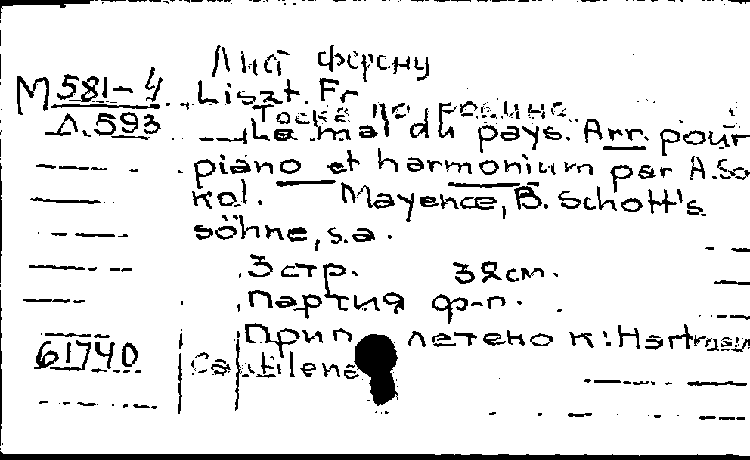 Лист Ференц
М 581-4 Liszt. Fr
Тоска по родине.
Л.593 Le mal du pays. Arr. pour
piano et harmonium par A. So
kol. Mayence, B. Schott's
söhne, s.a.
3 стр. 32 см.
Партия ф-п.
Приплетено к: Hartmann
61740 Cantilena